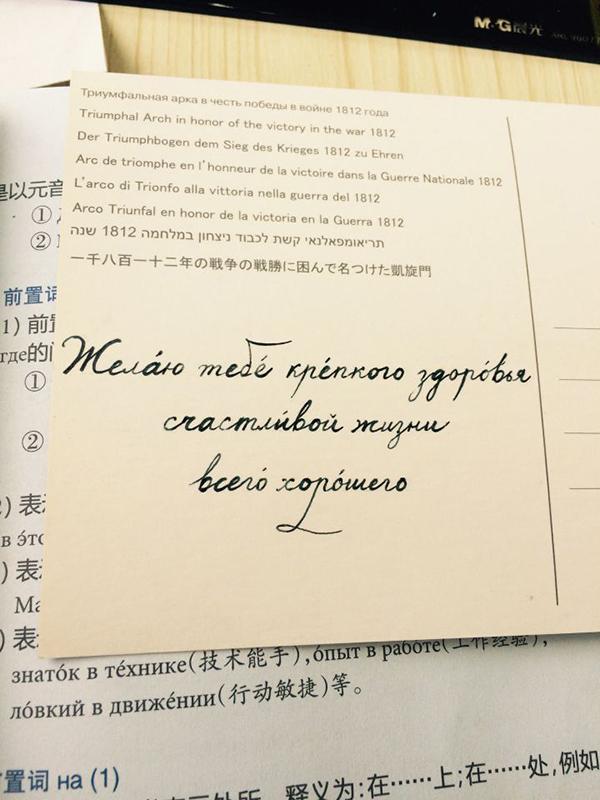 M&G晨光
Триумфальная арка в честь победы в войне 1812 года
Triumphal Arch in honor of the victory in the war 1812
Der Triumphbogen dem Sieg des Krieges 1812 zu Ehren
Arc de triomphe en l'honneur de la victoire dans la Guerre Nationale 1812
L'arco di Trionfo alla vittoria nella guerra del 1812
Arco Triunfal en honor de la victoria en la Guerra 1812
תריאומפאלנאי קשת לכבוד ניצחון במלחמה 1812 שנה
一千八百一十二年の戦争の戦勝に因んで名つけた凱旋門
Жела́ю тебе́ кре́пкого здоро́вья
счастли́вой жизни
всего́ хоро́шего
是以元音
①
②
前置词
1) 前置
где的问
①
②
2) 表示
в э́то
) 表示
Ма
) 表示
знато́к в те́хнике(技术能手),о́пыт в рабо́те(工作经验),
ло́вкий в движе́нии(行动敏捷)等。
置词 на (1)
释义为:在……上;在……处,例如